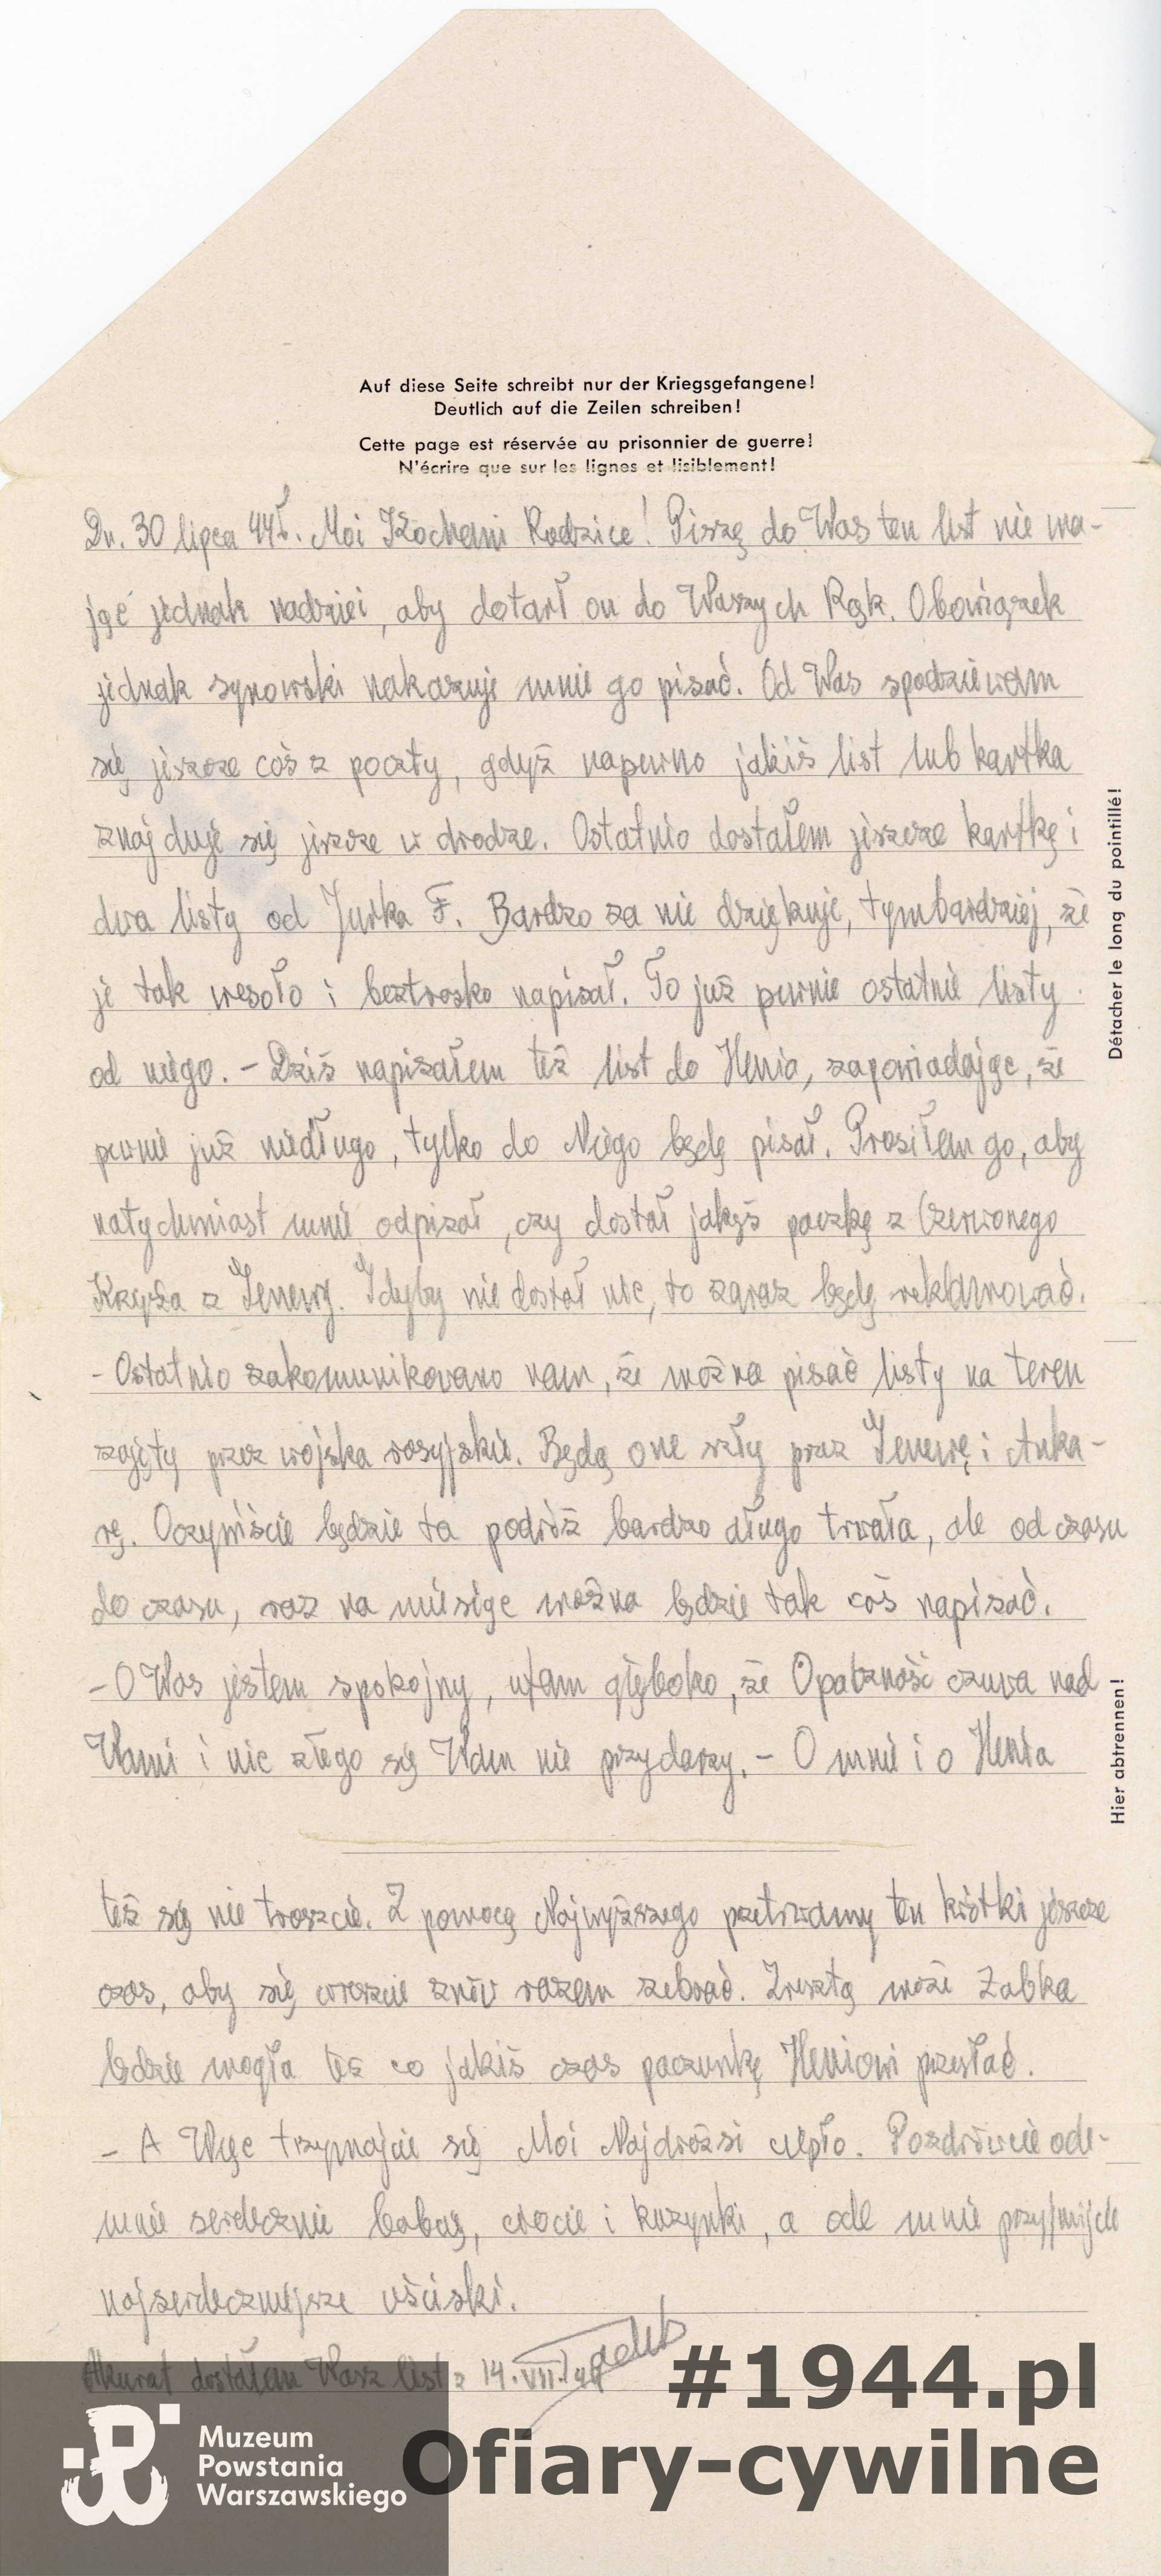 Auf diese Seite schreibt nur der Kriegsgefangene!
Deutlich auf die Zeilen schreiben!
Cette page est réservée au prisonnier de guerre!
N'écrire que sur les lignes et lisiblement!
Dn. 30 lipca 44r. Moi Kochani Rodzice! Piszę do Was ten list nie ma-
jąc jednak nadziei, aby dotarł on do Waszych Rąk. Obowiązek
jednak synowski nakazuje mnie go pisać. Od Was spodziewam
się jeszcze coś z poczty, gdyż napewno jakiś list lub kartka
znajduje się jeszcze w drodze. Ostatnio dostałem jeszcze kartkę i
dwa listy od Jurka F. Bardzo za nie dziękuję, tymbardziej, że
je tak wesoło i beztrosko napisał. To już pewnie ostatnie listy
od niego. – Dziś napisałem też list do Henia, zapowiadając, że
pewnie już niedługo, tylko do Niego będę pisał. Prosiłem go, aby
natychmiast mnie odpisał, czy dostał jakąś paczkę z Czerwonego
Krzyża z Genewy. Gdyby nie dostał nic, to zaraz będę reklamować.
- Ostatnio zakomunikowano nam, że można pisać listy na teren
zajęty przez wojska rosyjskie. Będą one szły przez Genewę i Anka-
rę. Oczywiście będzie ta podróż bardzo długo trwała, ale od czasu
do czasu, raz na miesiąc można będzie tak coś napisać.
- O Was jestem spokojny, ufam głęboko, że Opatrzność czuwa nad
Wami i nic złego się Wam nie przydarzy. – O mnie i o Henia
też się nie troszcie. Z pomocą Najwyższego przetrwamy ten krótki jeszcze
czas, aby się wreszcie znów razem zebrać. Zresztą może Żabka
będzie mogła też co jakiś czas paczunkę Heniowi przesłać.
- A Więc trzymajcie się Moi Najdrożsi ciepło. Pozdrówcie ode-
mnie serdecznie babcię, ciocie i kuzynki, a ode mnie przyjmijcie
najserdeczniejsze uściski.
Akurat dostałem Wasz list z 14.VII.44
Détacher le long du pointillé!
Hier abtrennen!
#1944.pl
Ofiary-cywilne
Muzeum
Powstania
Warszawskiego